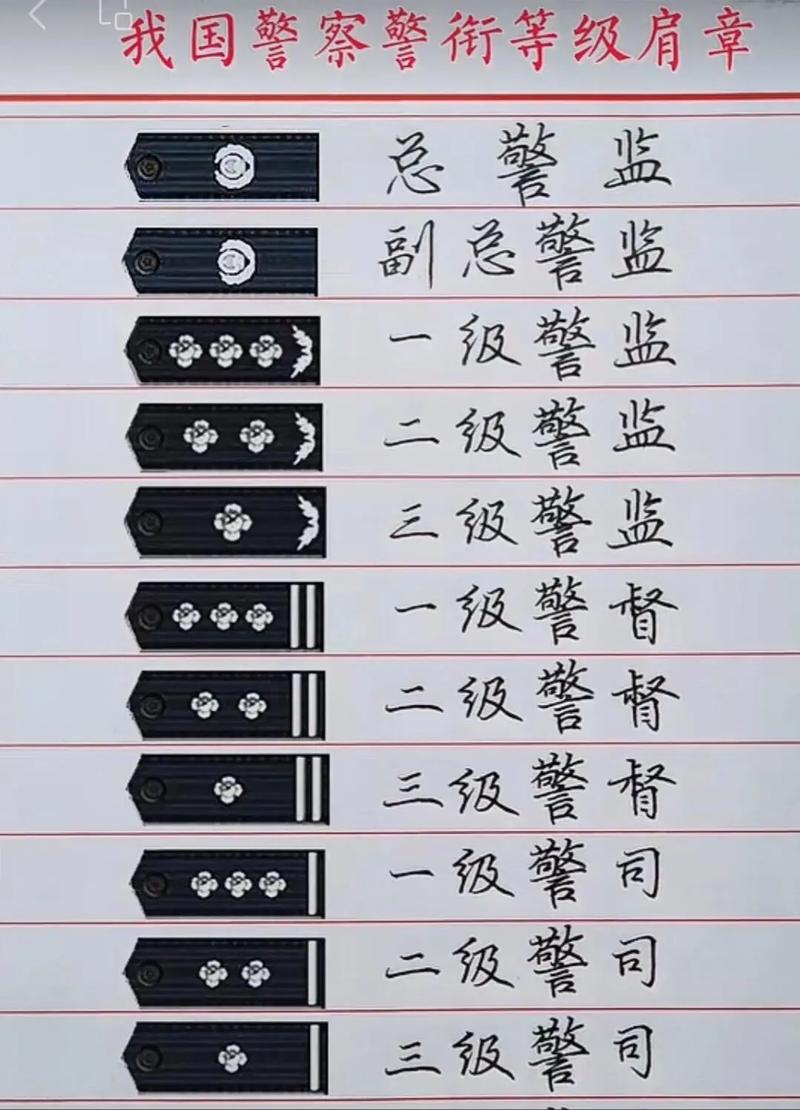 我国警察警衔等级肩章
总警监
副总警监
一级警监
二级警监
三级警监
一级警督
二级警督
三级警督
一级警司
二级警司
三级警司